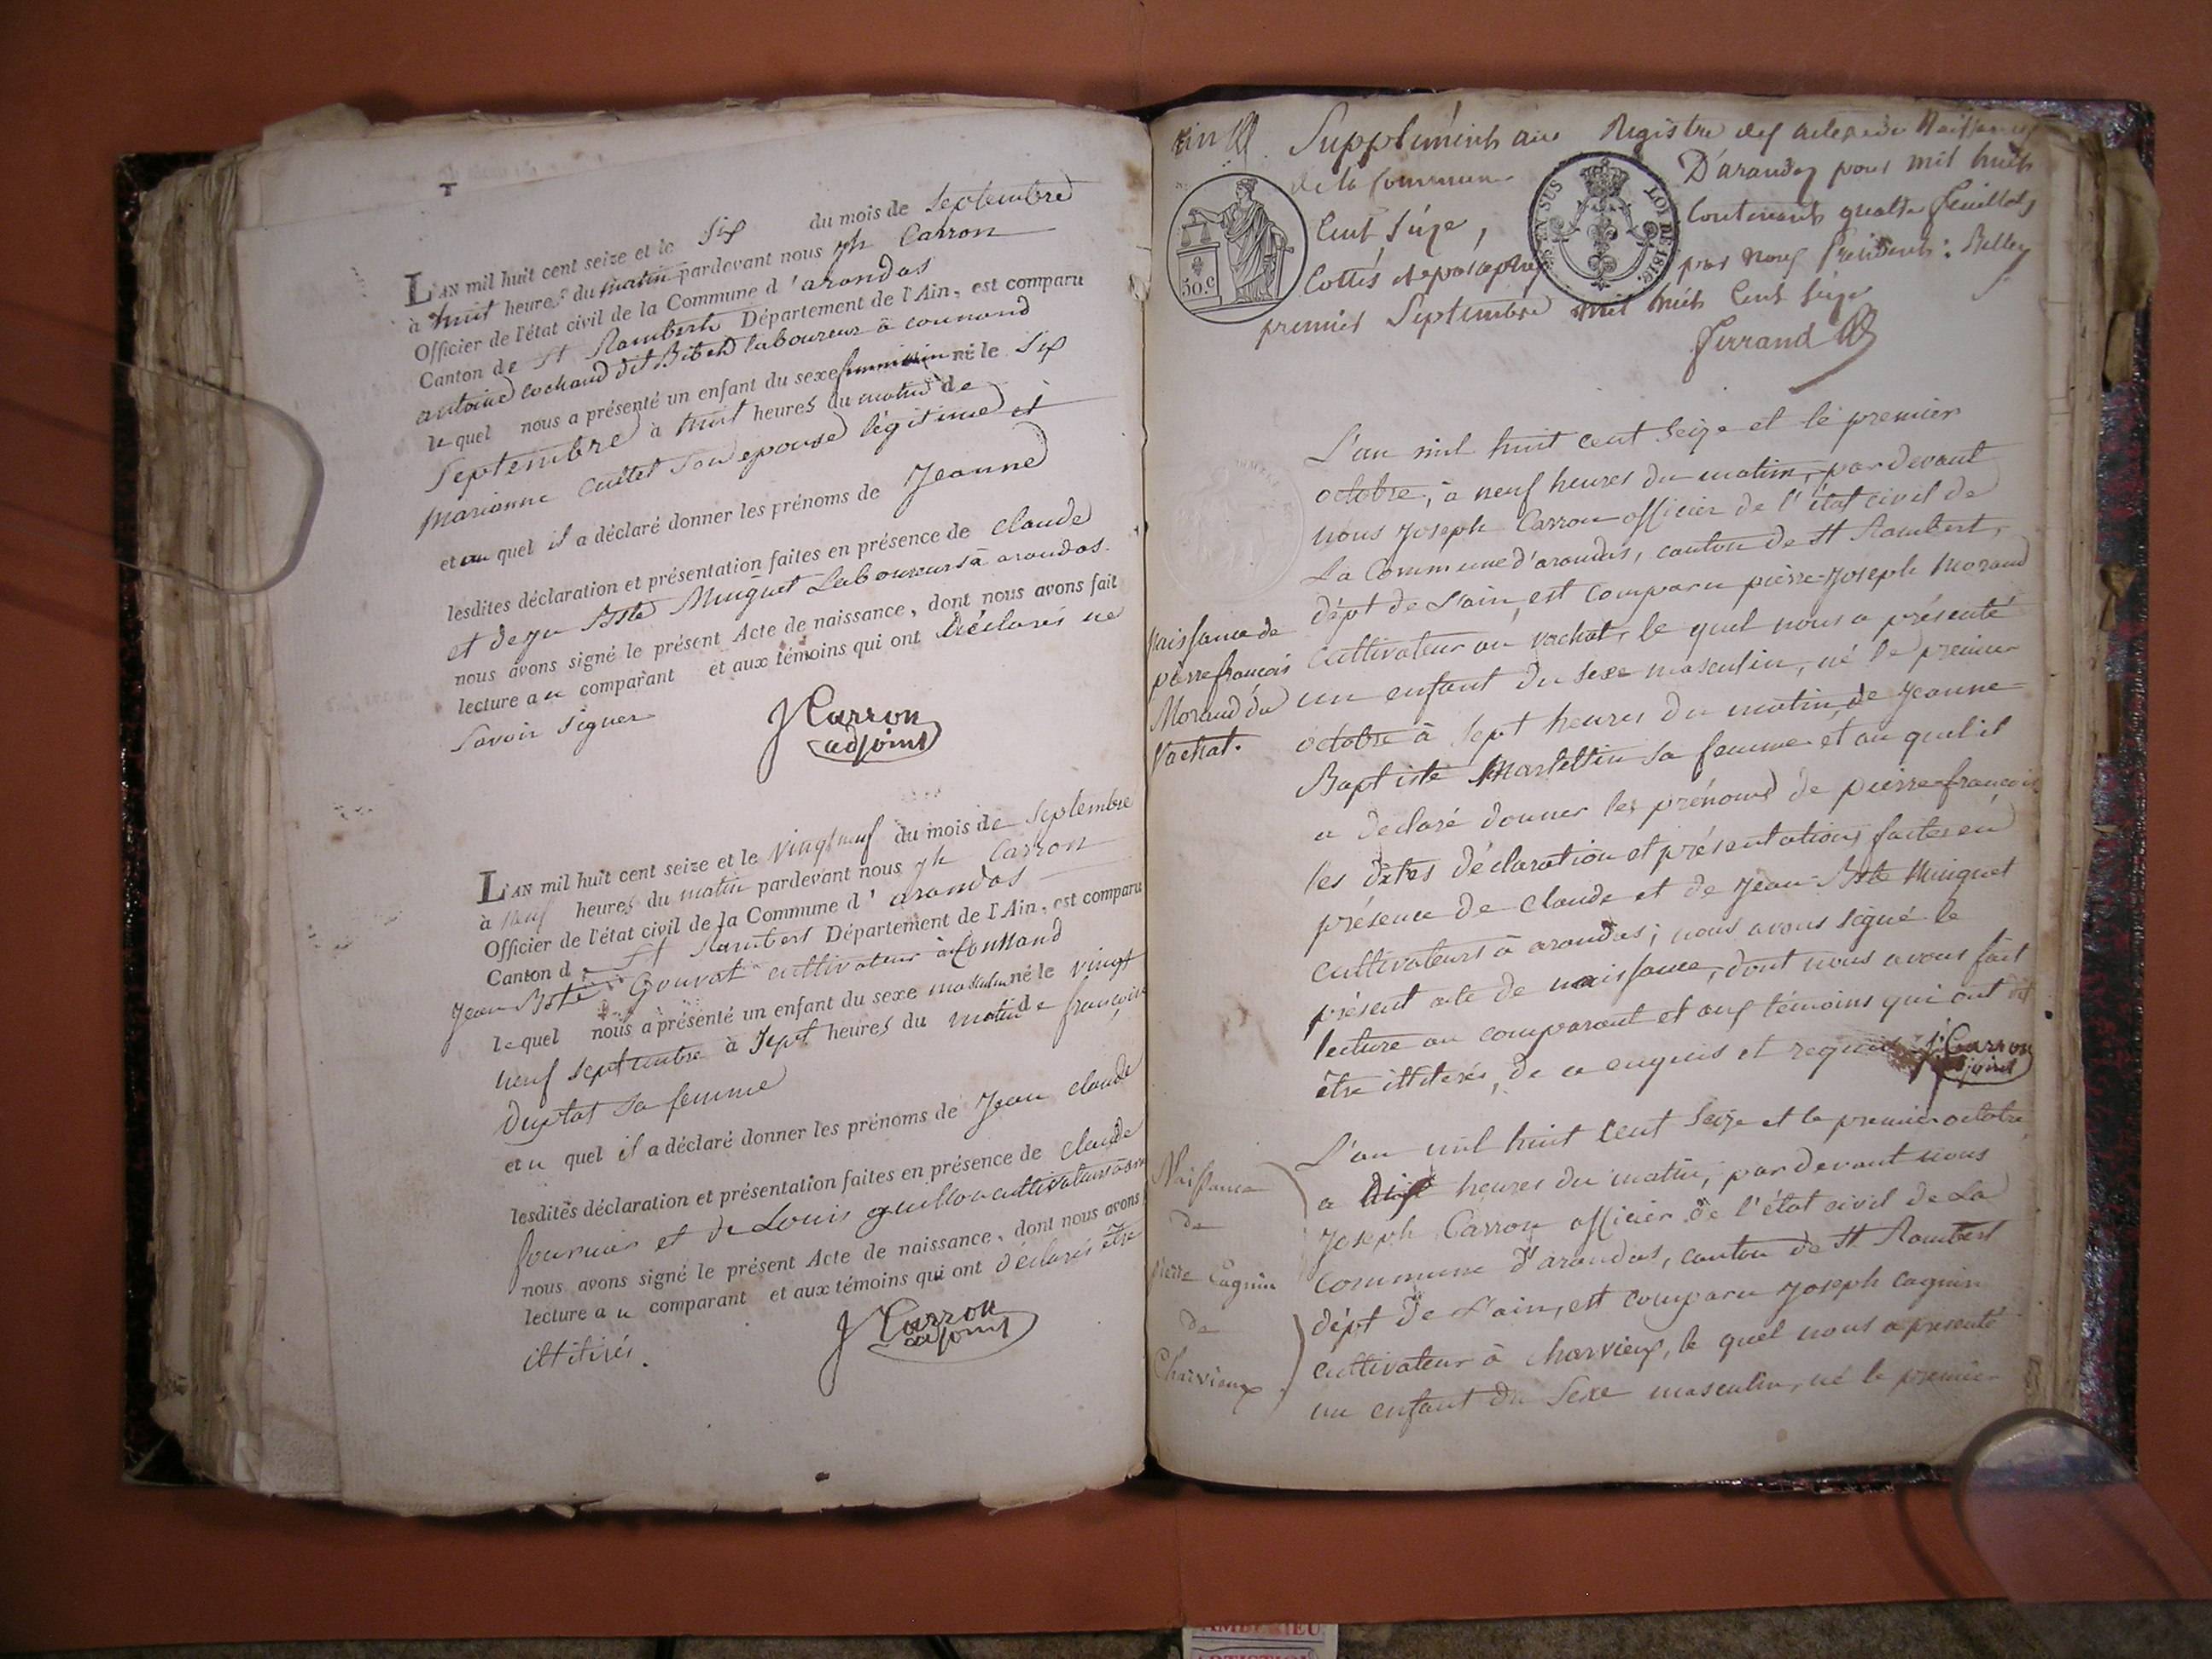 L'AN mil huit cent seize et le Six du mois de Septembre
à huit heures du matin pardevant nous jh Carron
Officier de l'état civil de la Commune d'arandas
Canton de St Rambert Département de l'Ain, est comparu
antoine cochaud dit Bibet laboureur à connand
lequel nous a présenté un enfant du sexe feminin né le Six
Septembre à huit heures du matin de
Marianne cuttet son epouse légitime et
et au quel il a déclaré donner les prénoms de Jeanne
lesdites déclaration et présentation faites en présence de claude
et de jn Bste Minguet Laboureurs à arandas.
nous avons signé le présent Acte de naissance, dont nous avons fait
lecture au comparant et aux témoins qui ont déclarés ne
Savoir Signer
J Carron
adjoint
L'AN mil huit cent seize et le vingt neuf du mois de Septembre
à neuf heures du matin pardevant nous jh Carron
Officier de l'état civil de la Commune d'arandas
Canton de St Rambert Département de l'Ain, est comparu
Jean Bste Gouvat cultivateur à Connand
lequel nous a présenté un enfant du sexe masculin né le vingt
neuf septembre à Sept heures du matin de françoise
sa femme
et au quel il a déclaré donner les prénoms de Jean claude
lesdites déclaration et présentation faites en présence de claude
fournier et de Louis guillon cultivateurs à
nous avons signé le présent Acte de naissance, dont nous avons
lecture au comparant et aux témoins qui ont déclarés être
illitirés.
J Carron
adjoint
Supplément au Registre des actes de Naissances
de la Commune D'arandas pour mil huit
Cent Seize, Contenant quatre feuillets
Cottés et paraphés par Nous Président : Belley
premier Septembre mil huit Cent Seize
Ferrand
50.C
EN SUS LOI DE 1816.
L'an mil huit cent Seize et le premier
octobre, à neuf heures du matin, par devant
nous Joseph Carron officier de l'état civil de
La Commune d'arandas, canton de St Rambert,
dépt de L'ain, est comparu pierre-Joseph Morand
Naissance de
pierre francois
Morand du
Vachat.
cultivateur au vachat, le quel nous a présenté
un enfant du Sexe masculin, né le premier
octobre à Sept heures du matin, de Jeanne-
Baptiste Martettin sa femme et au quel il
a declaré donner les prénoms de pierre-francois
les dites déclaration et présentation faites en
présence de claude et de Jean-Bste Minguet
cultivateurs à arandas; nous avons signé le
présent acte de naissance, dont nous avons fait
lecture au comparant et aux témoins qui ont dit
être illiterés, de ce enquis et requis J. Carron
adjoint
L'an mil huit Cent Seize et le premier octobre
Naissance
de
pierre Cagnin
de
Charvieux
a dix heures du matin, par devant nous
Joseph Carron officier de l'état civil de La
Commune d'arandas, canton de St Rambert
dépt de L'ain, est comparu Joseph Cagnin
cultivateur à charvieux, le quel nous a presenté
un enfant du Sexe masculin, né le premier